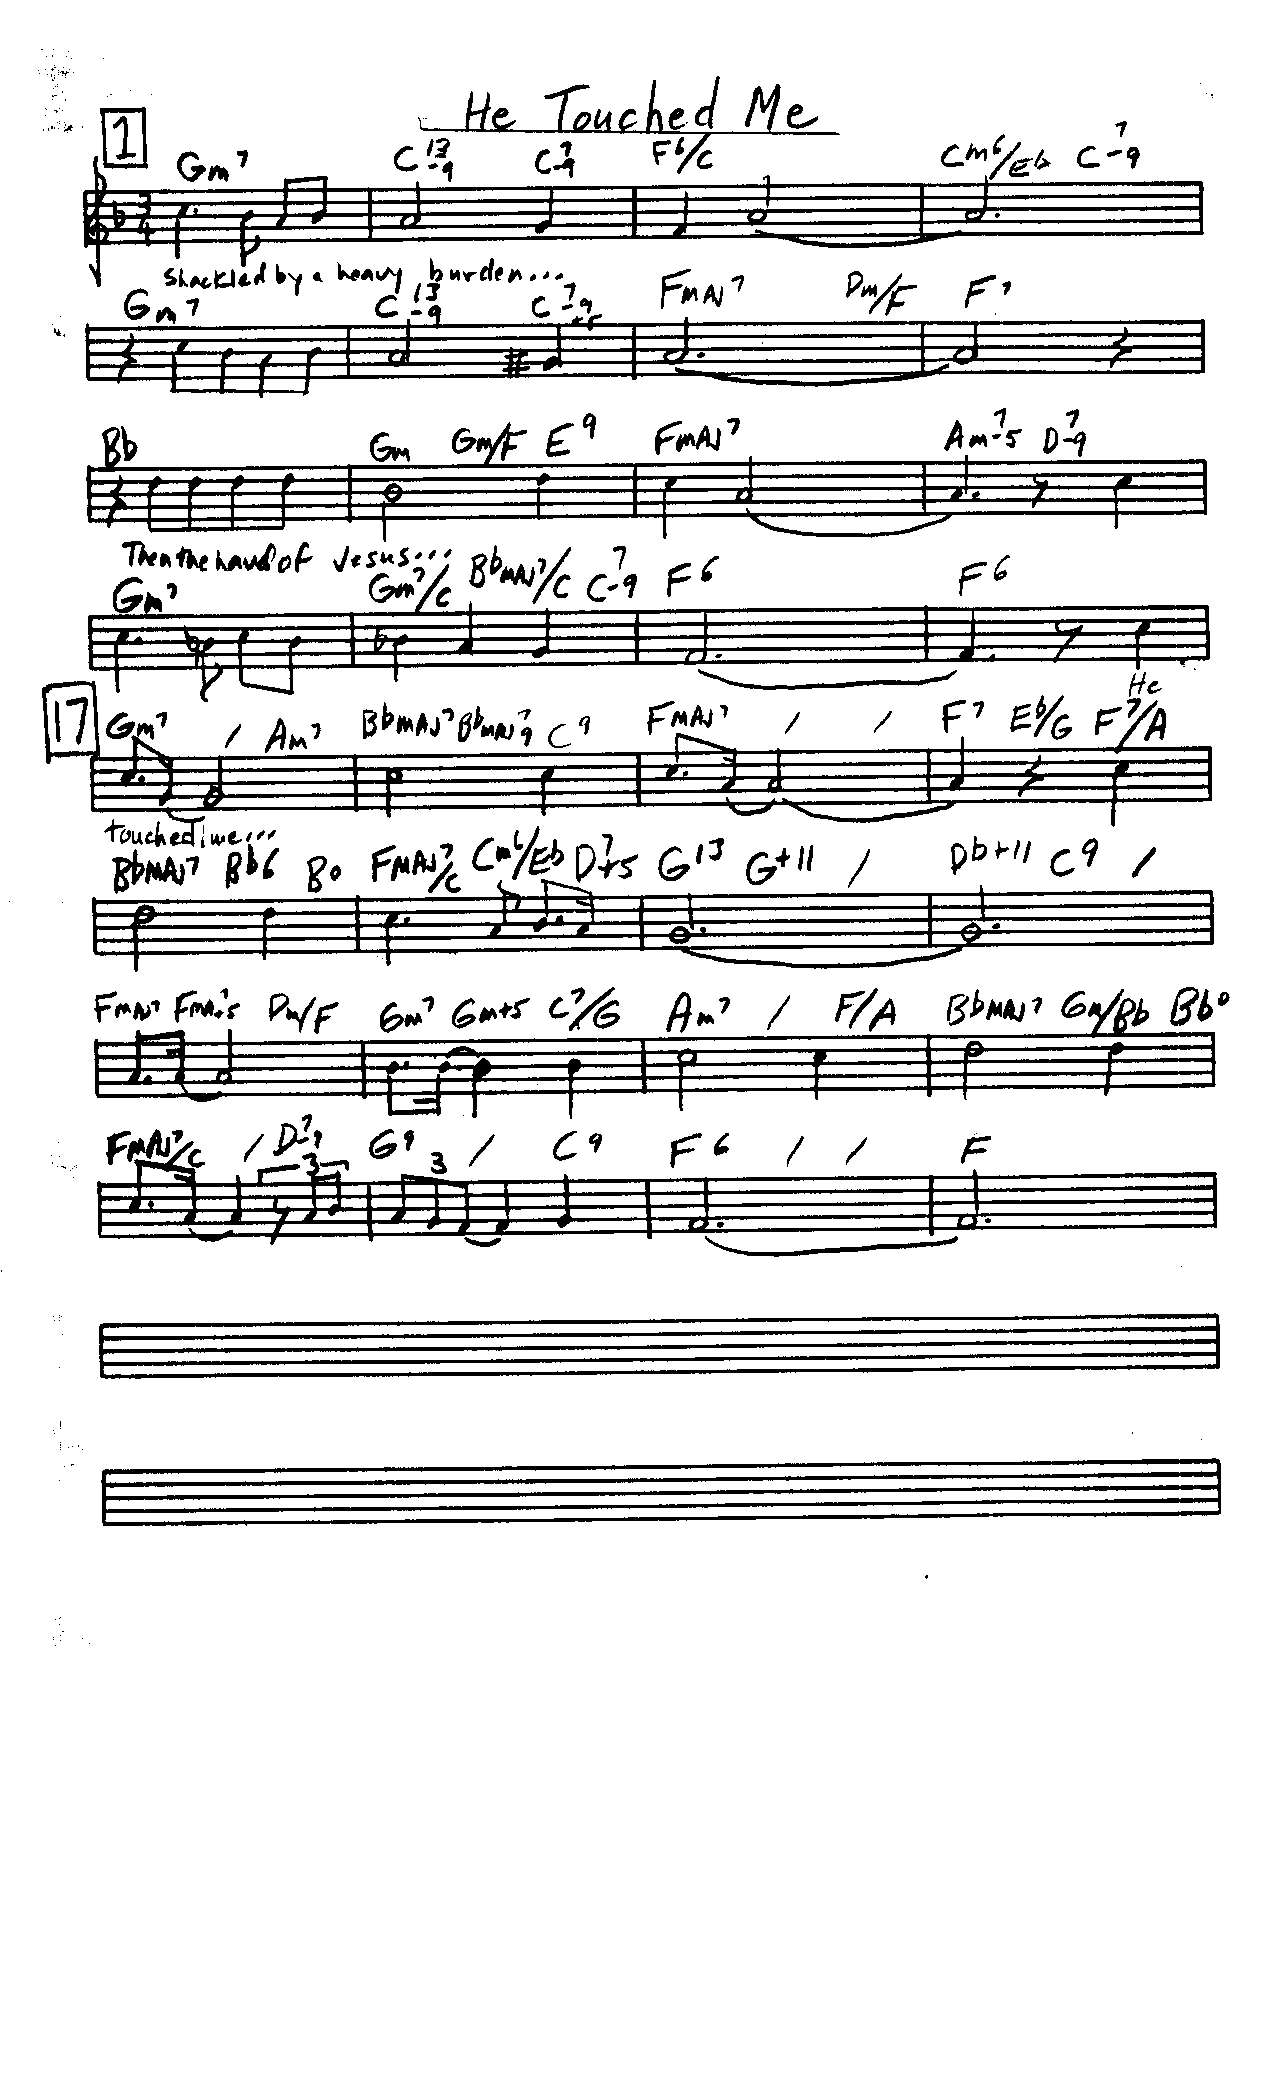 He Touched Me
1
Gm7 C13-9 C7-9 F6/C Cm6/Eb C7-9
3
4
Shackled by a heavy burden...
Gm7 C13-9 C7-9+5 FMAJ7 Dm/F F7
Bb Gm Gm/F E9 FMAJ7 Am7-5 D7-9
Then the hand of Jesus...
Gm7 Gm7/C BbMAJ7/C C7-9 F6 F6
He
17
Gm7 / Am7 BbMAJ7 BbMAJ79 C9 FMAJ7 / / F7 Eb/G F7/A
touched me...
BbMAJ7 Bb6 Bo FMAJ7/C Cm6/Eb D7+5 G13 G+11 / Db+11 C9 /
FMAJ7 FMAJ7+5 Dm/F Gm7 Gm+5 C7/G Am7 / F/A BbMAJ7 Gm/Bb Bbo
FMAJ7/C / D7-9 G9 / C9 F6 / / F
3 3